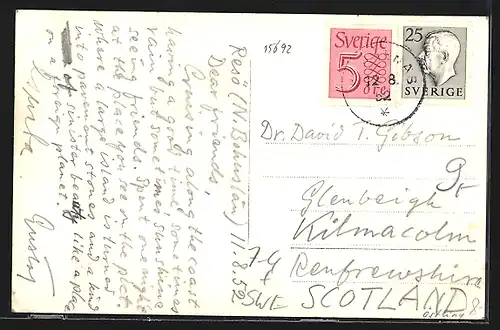 15692
Sverige
5
öre
25
SVERIGE
MAS
12.8.
52
Resö (N. Bohuslän) 11.8.52
Dear friends,
Cruising along the coast
having a good time, sometimes
rain but sometimes sunshine
seeing friends. Spent one night
at the place you see on the pict.
where a large island is turned
into pavement stones and a kind
of sinister beauty like a place
on a foreign planet.
Gustav
Dr. David T. Gibson
Glenbeigh
Kilmacolm
Renfrewshire
SCOTLAND
74
SWE